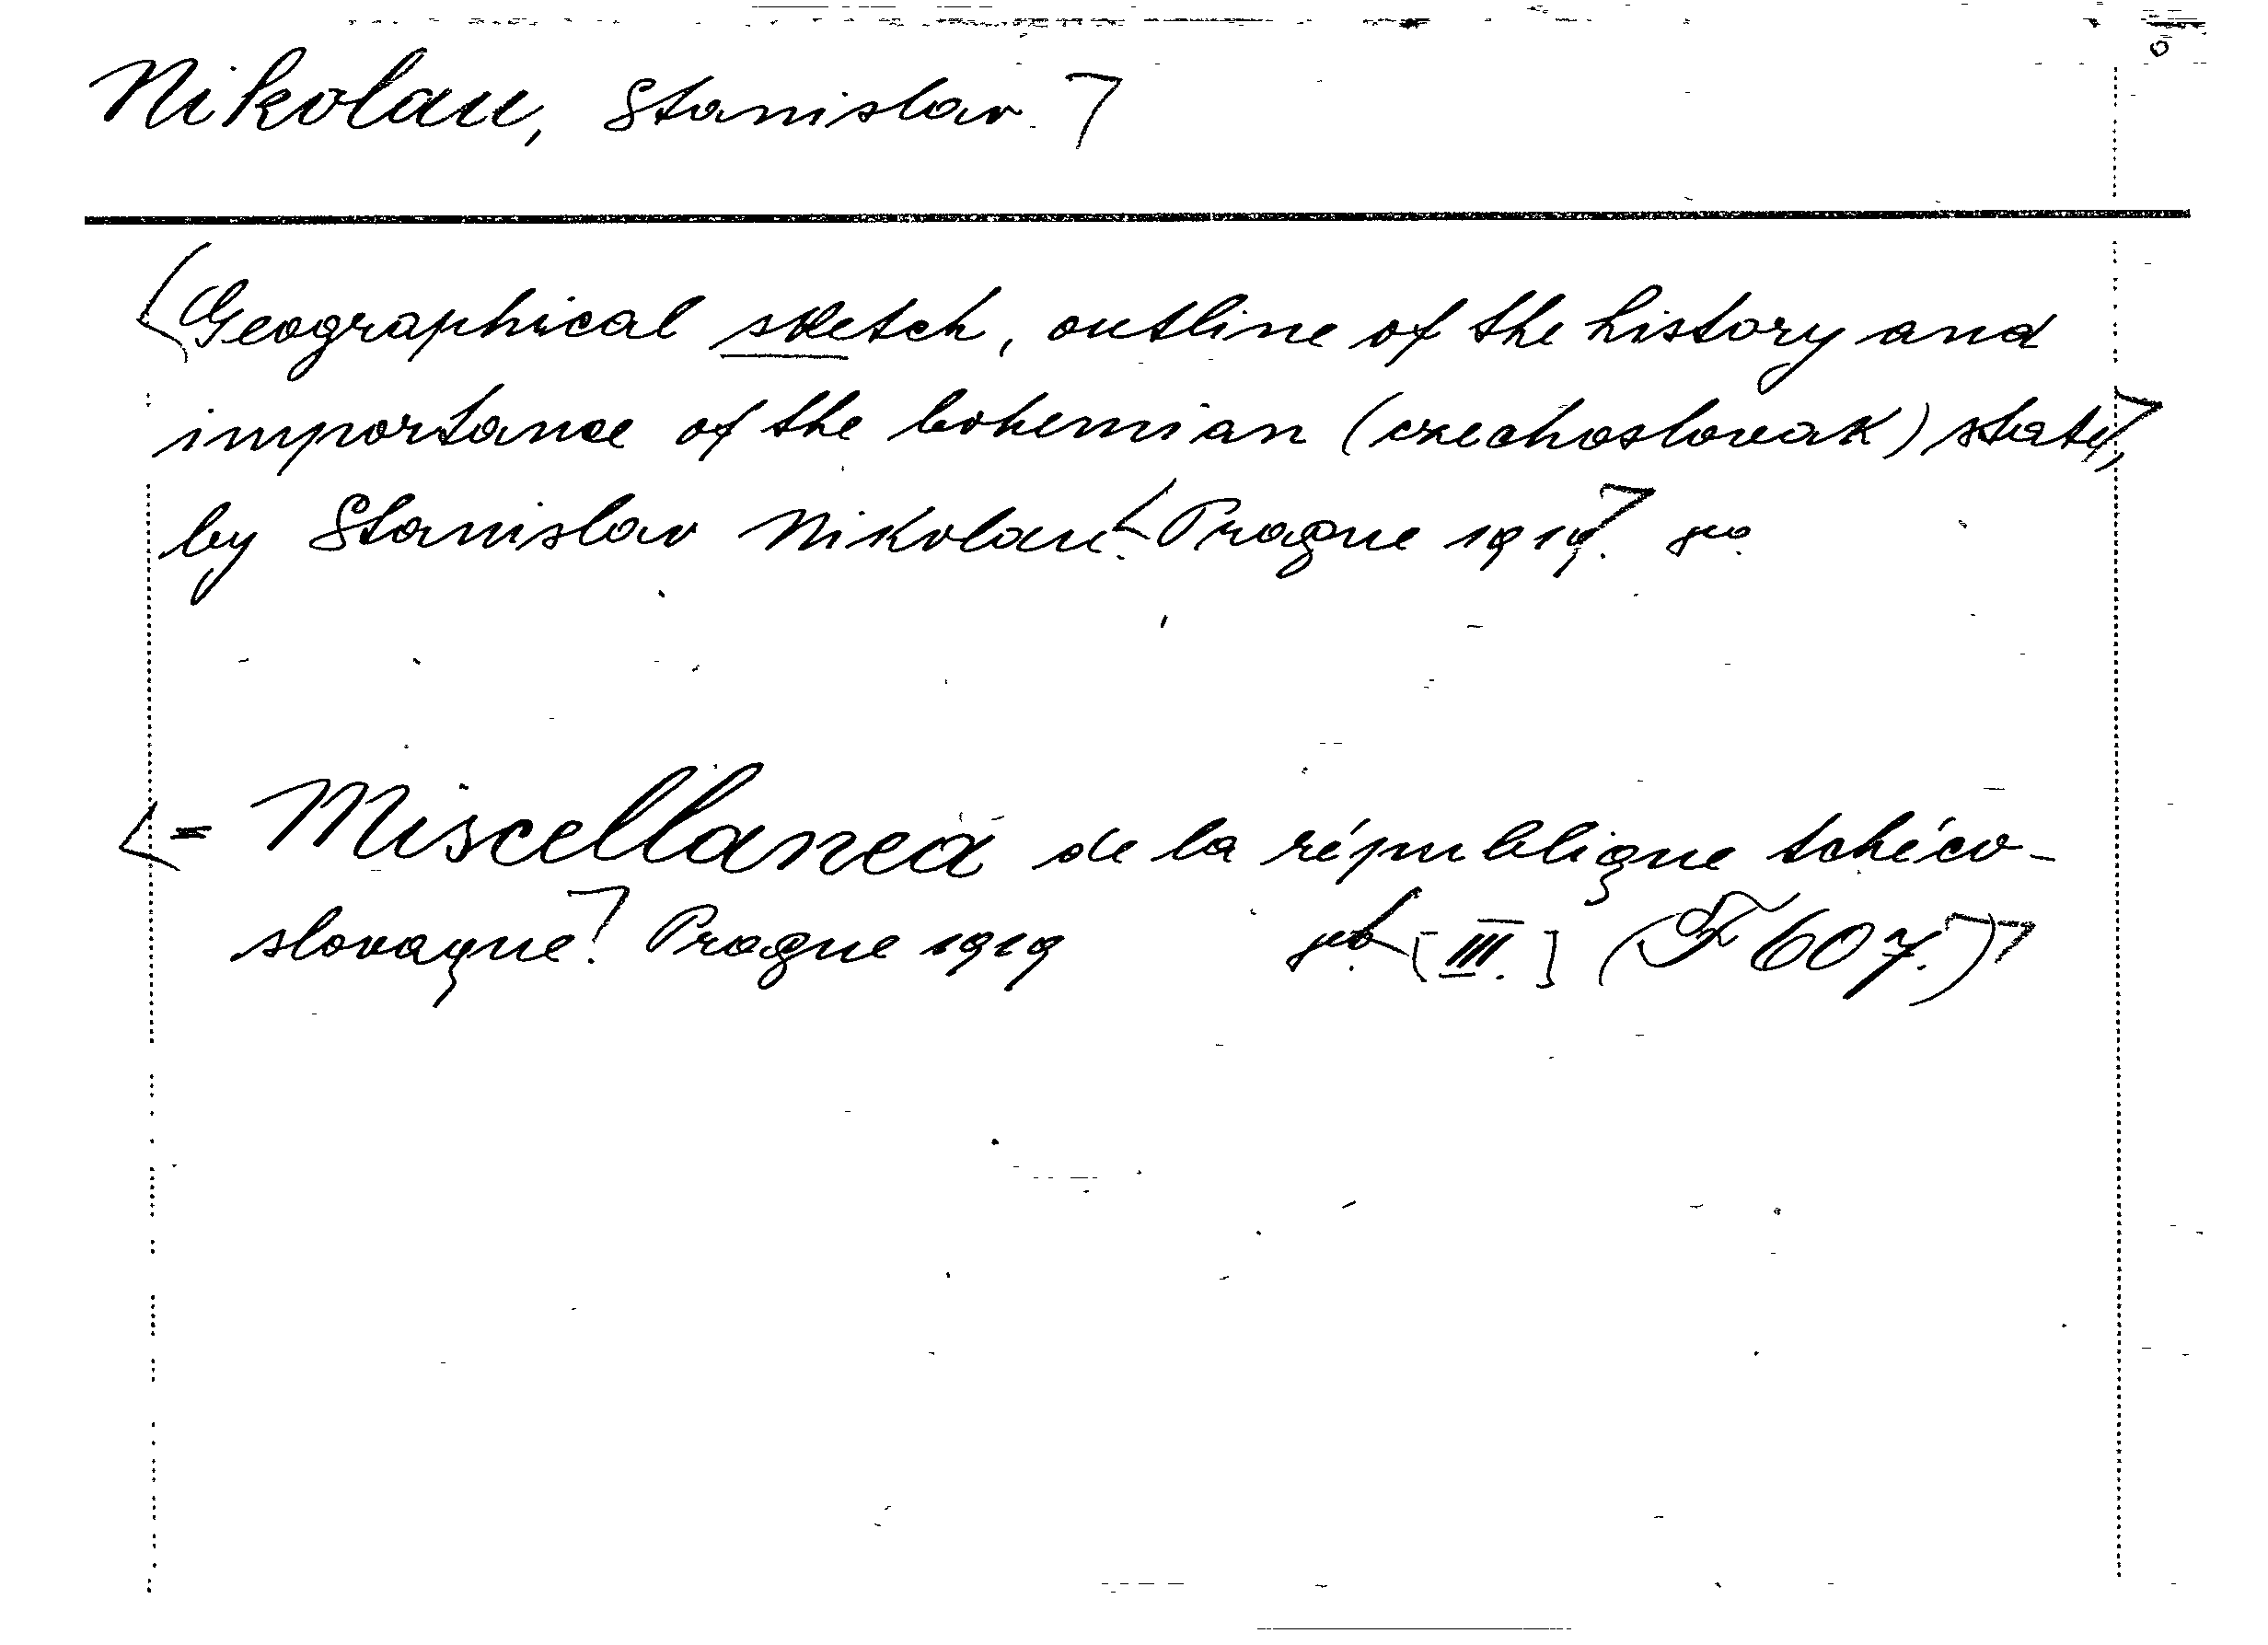 Nikolau, Stanislav
Geographical sketch, outline of the history and
importance of the bohemian (czechoslovak) state,
by Stanislav Nikolau. Prague 1919. 8vo.
= Miscellanea de la république tchéco-
slovaque. Prague 1919 [III.] (F 607.)